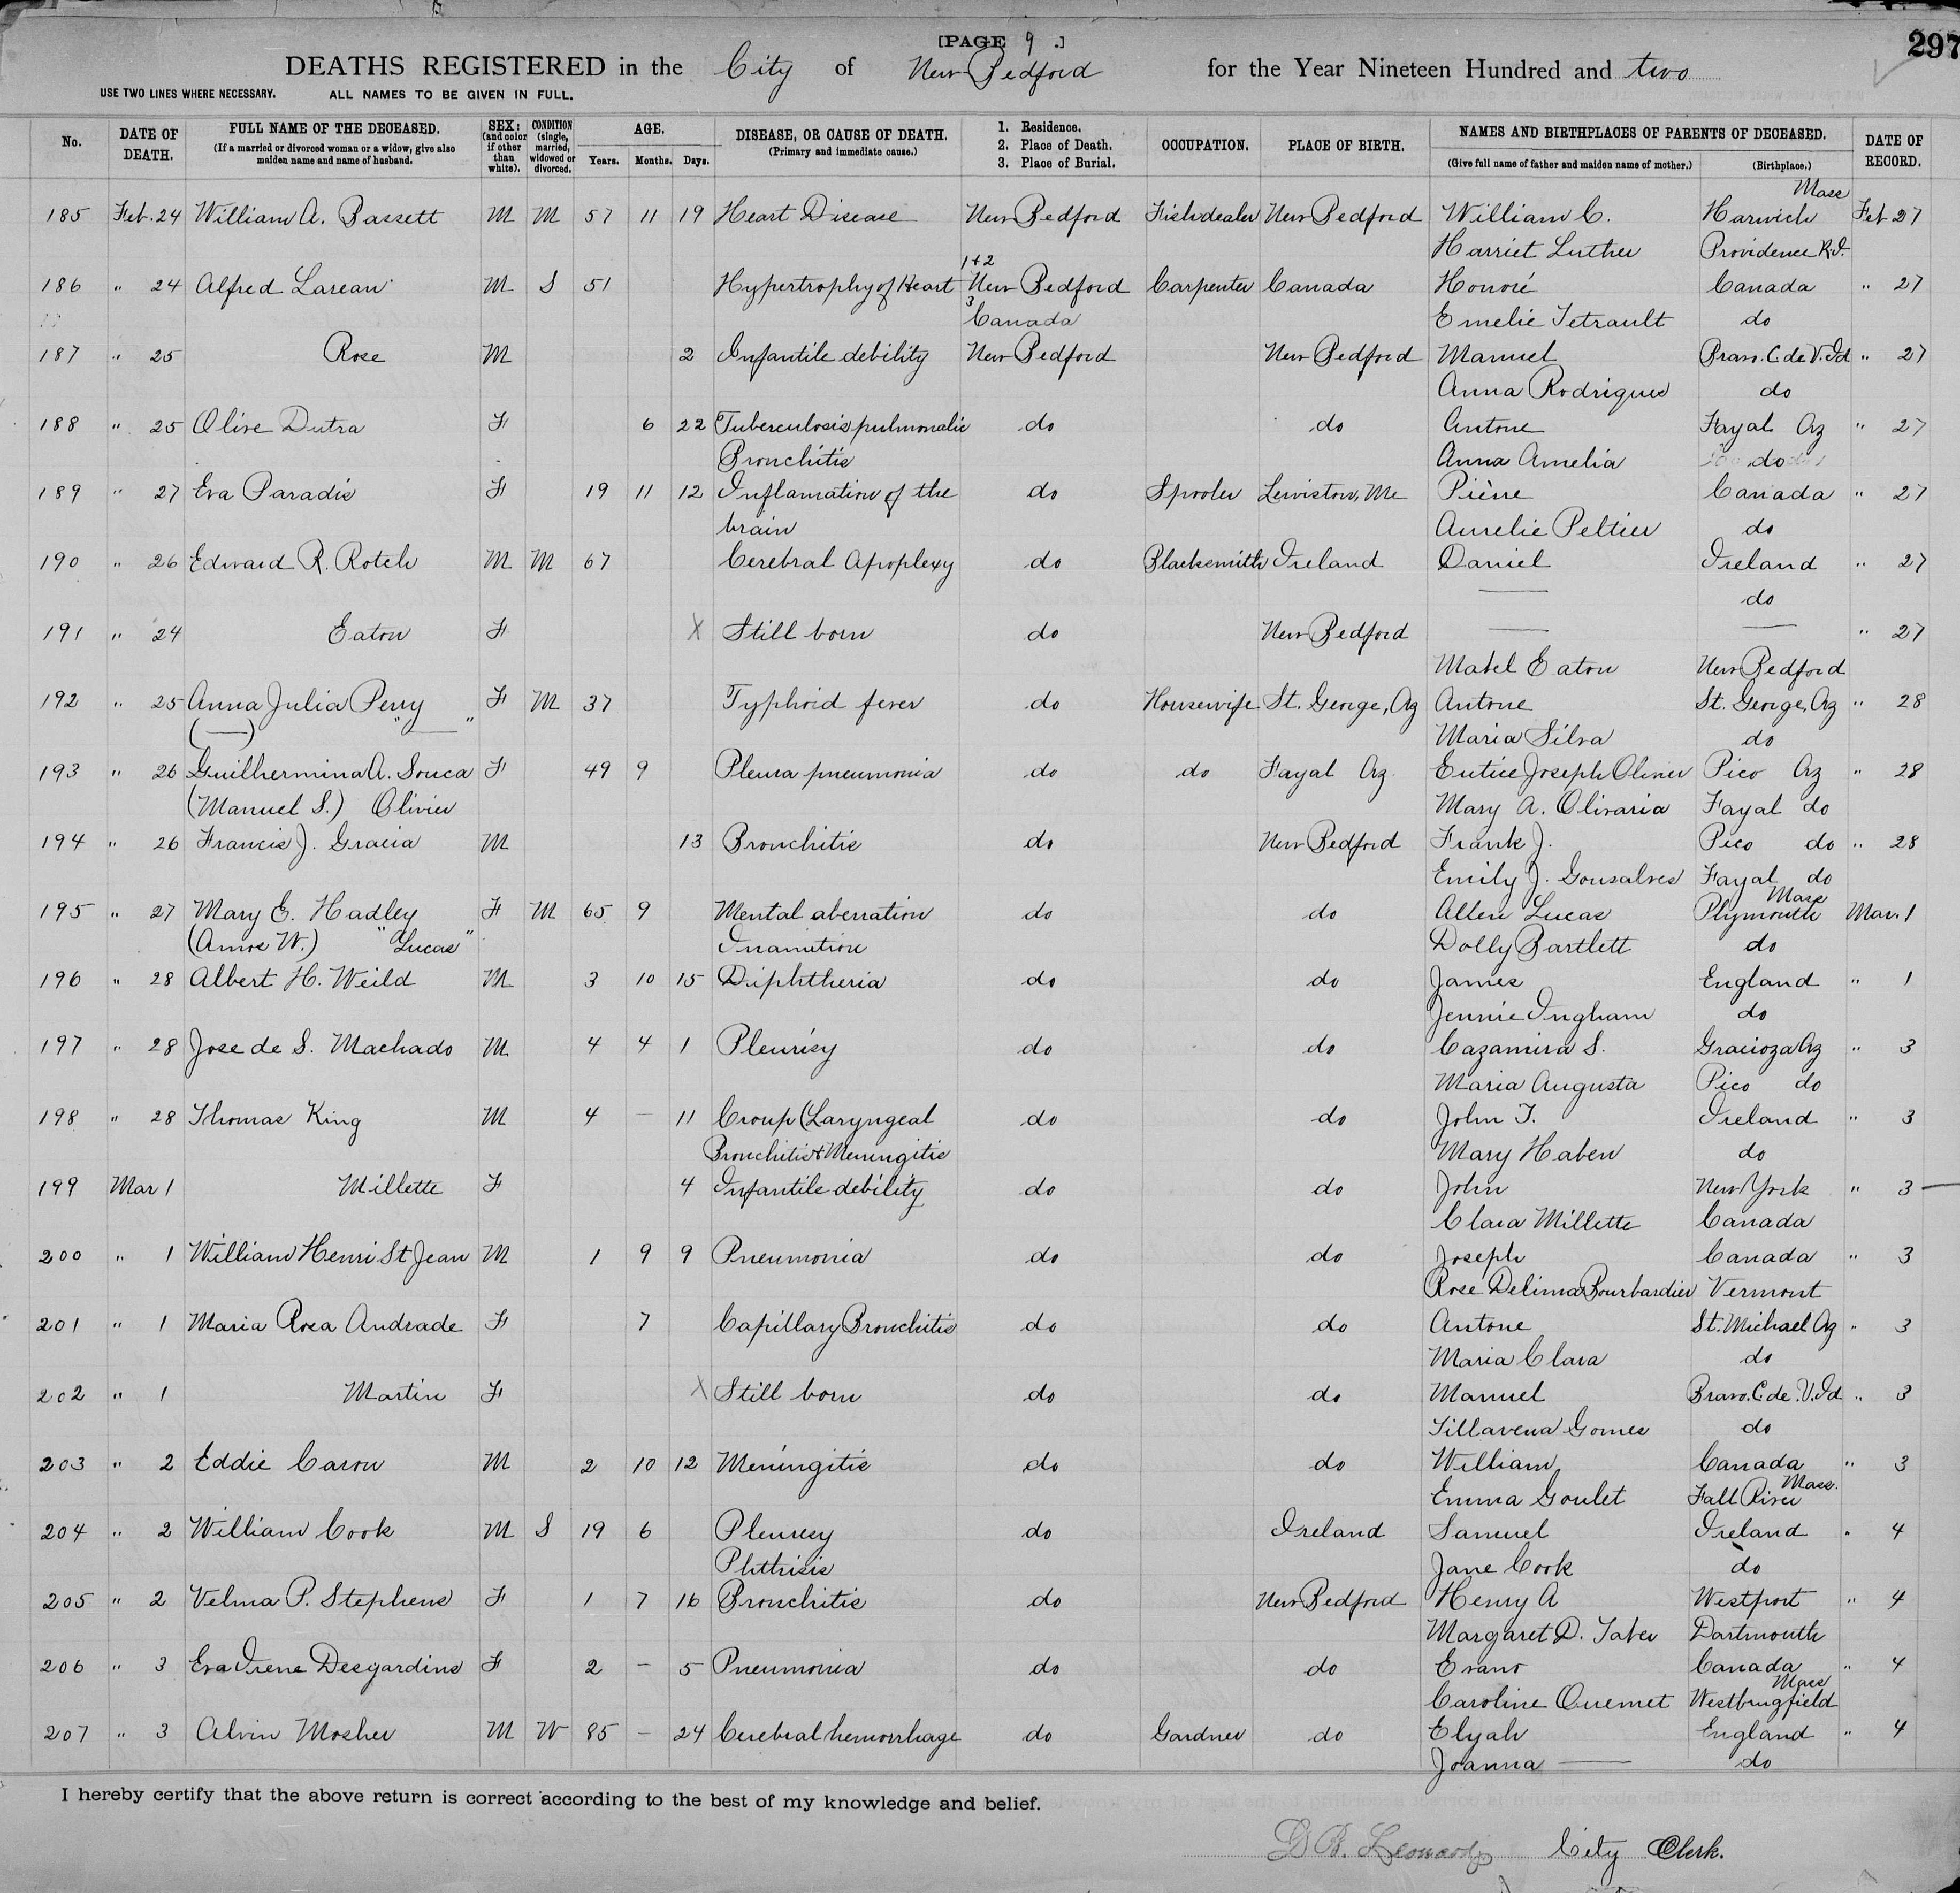 [PAGE 9 .]
297
DEATHS REGISTERED in the City of New Bedford for the Year Nineteen Hundred and two
USE TWO LINES WHERE NECESSARY. ALL NAMES TO BE GIVEN IN FULL.
No. DATE OF DEATH. FULL NAME OF THE DECEASED. (If a married or divorced woman or a widow, give also maiden name and name of husband. SEX; (and color if other than white). CONDITION (single, married, widowed or divorced. AGE. Years. Months. Days. DISEASE, OR CAUSE OF DEATH. (Primary and immediate cause.) 1. Residence. 2. Place of Death. 3. Place of Burial. OCCUPATION. PLACE OF BIRTH. NAMES AND BIRTHPLACES OF PARENTS OF DECEASED. (Give full name of father and maiden name of mother.) (Birthplace.) DATE OF RECORD.
185 Feb. 24 William A. Bassett M M 57 11 19 Heart Disease New Bedford Fishdealer New Bedford William C. Harwich Mass Feb 27
Harriet Luther Providence R.I.
186 " 24 Alfred Lareau M S 51 Hypertrophy of Heart 1+2 New Bedford Carpenter Canada Honoré Canada " 27
3 Canada Emelie Tetrault do
187 " 25 Rose M 2 Infantile debility New Bedford New Bedford Manuel Brav. C. de V. Id " 27
Anna Rodrigues do
188 " 25 Olive Dutra F 6 22 Tuberculosis pulmonalis do do Antone Fayal Az " 27
Bronchitis Anna Amelia do
189 " 27 Eva Paradis F 19 11 12 Inflamation of the do Spooler Lewiston, Me Pièrre Canada " 27
brain Aurelie Peltier do
190 " 26 Edward R. Rotch M M 67 Cerebral Apoplexy do Blacksmith Ireland Daniel Ireland " 27
— do
191 " 24 Eaton F X Still born do New Bedford — — " 27
Mabel Eaton New Bedford
192 " 25 Anna Julia Perry F M 37 Typhoid fever do Housewife St. George, Az Antone St. George, Az " 28
(—) "—" Maria Silva do
193 " 26 Guilhermina A. Souca F 49 9 Pleura pneumonia do do Fayal Az. Eutice Joseph Olivier Pico Az " 28
(Manuel S.) Olivier Mary A. Olivaria Fayal do
194 " 26 Francis J. Gracia M 13 Bronchitis do New Bedford Frank J. Pico do " 28
Emily J. Gonsalves Fayal do
195 " 27 Mary E. Hadley F M 65 9 Mental aberration do do Allen Lucas Plymouth Mass Mar. 1
(Amos W.) "Lucas" Inanition Dolly Bartlett do
196 " 28 Albert H. Weild M 3 10 15 Diphtheria do do James England " 1
Jennie Ingham do
197 " 28 Jose de S. Machado M 4 4 1 Pleurisy do do Cazamira S. Gracioza Az " 3
Maria Augusta Pico do
198 " 28 Thomas King M 4 — 11 Croup (Laryngeal do do John T. Ireland " 3
Bronchitis & Meningitis Mary Haben do
199 Mar 1 Millette F 4 Infantile debility do do John New York " 3
Clara Millette Canada
200 " 1 William Henri St Jean M 1 9 9 Pneumonia do do Joseph Canada " 3
Rose Delima Bourbardier Vermont
201 " 1 Maria Rosa Andrade F 7 Capillary Bronchitis do do Antone St. Michael Az " 3
Maria Clara do
202 " 1 Martin F X Still born do do Manuel Bravo. C. de. V. Id " 3
Sillavena Gomes do
203 " 2 Eddie Caron M 2 10 12 Meningitis do do William Canada " 3
Emma Goulet Fall River Mass.
204 " 2 William Cook M S 19 6 Pleurisy do Ireland Samuel Ireland " 4
Phthisis Jane Cook do
205 " 2 Velma P. Stephens F 1 7 16 Bronchitis do New Bedford Henry A Westport " 4
Margaret D. Taber Dartmouth
206 " 3 Eva Irene Desgardins F 2 — 5 Pneumonia do do Canada " 4
Caroline Ouemet Mass
207 " 3 Alvin Mosher M W 85 — 24 Cerebral hemorrhage do Gardner do Elyah England " 4
Joanna — do
I hereby certify that the above return is correct according to the best of my knowledge and belief.
D B. Leonard City Clerk.